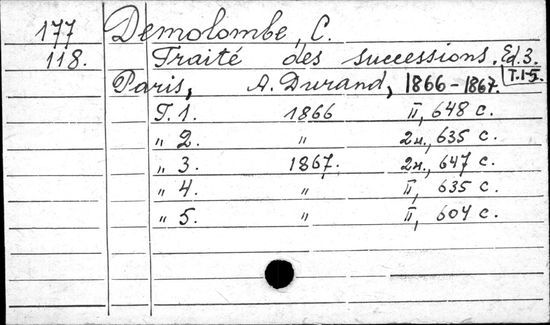 177 Demolombe, C.
118. Traité des successions. Ed. 3.
T. 1-5.
Paris, A. Durand, 1866-1867.
T. 1. 1866 II, 648 c.
" 2. 2н., 635 c.
" 3. 1867. 2н., 647 c.
" 4. " II, 635 c.
" 5. " II, 604 c.